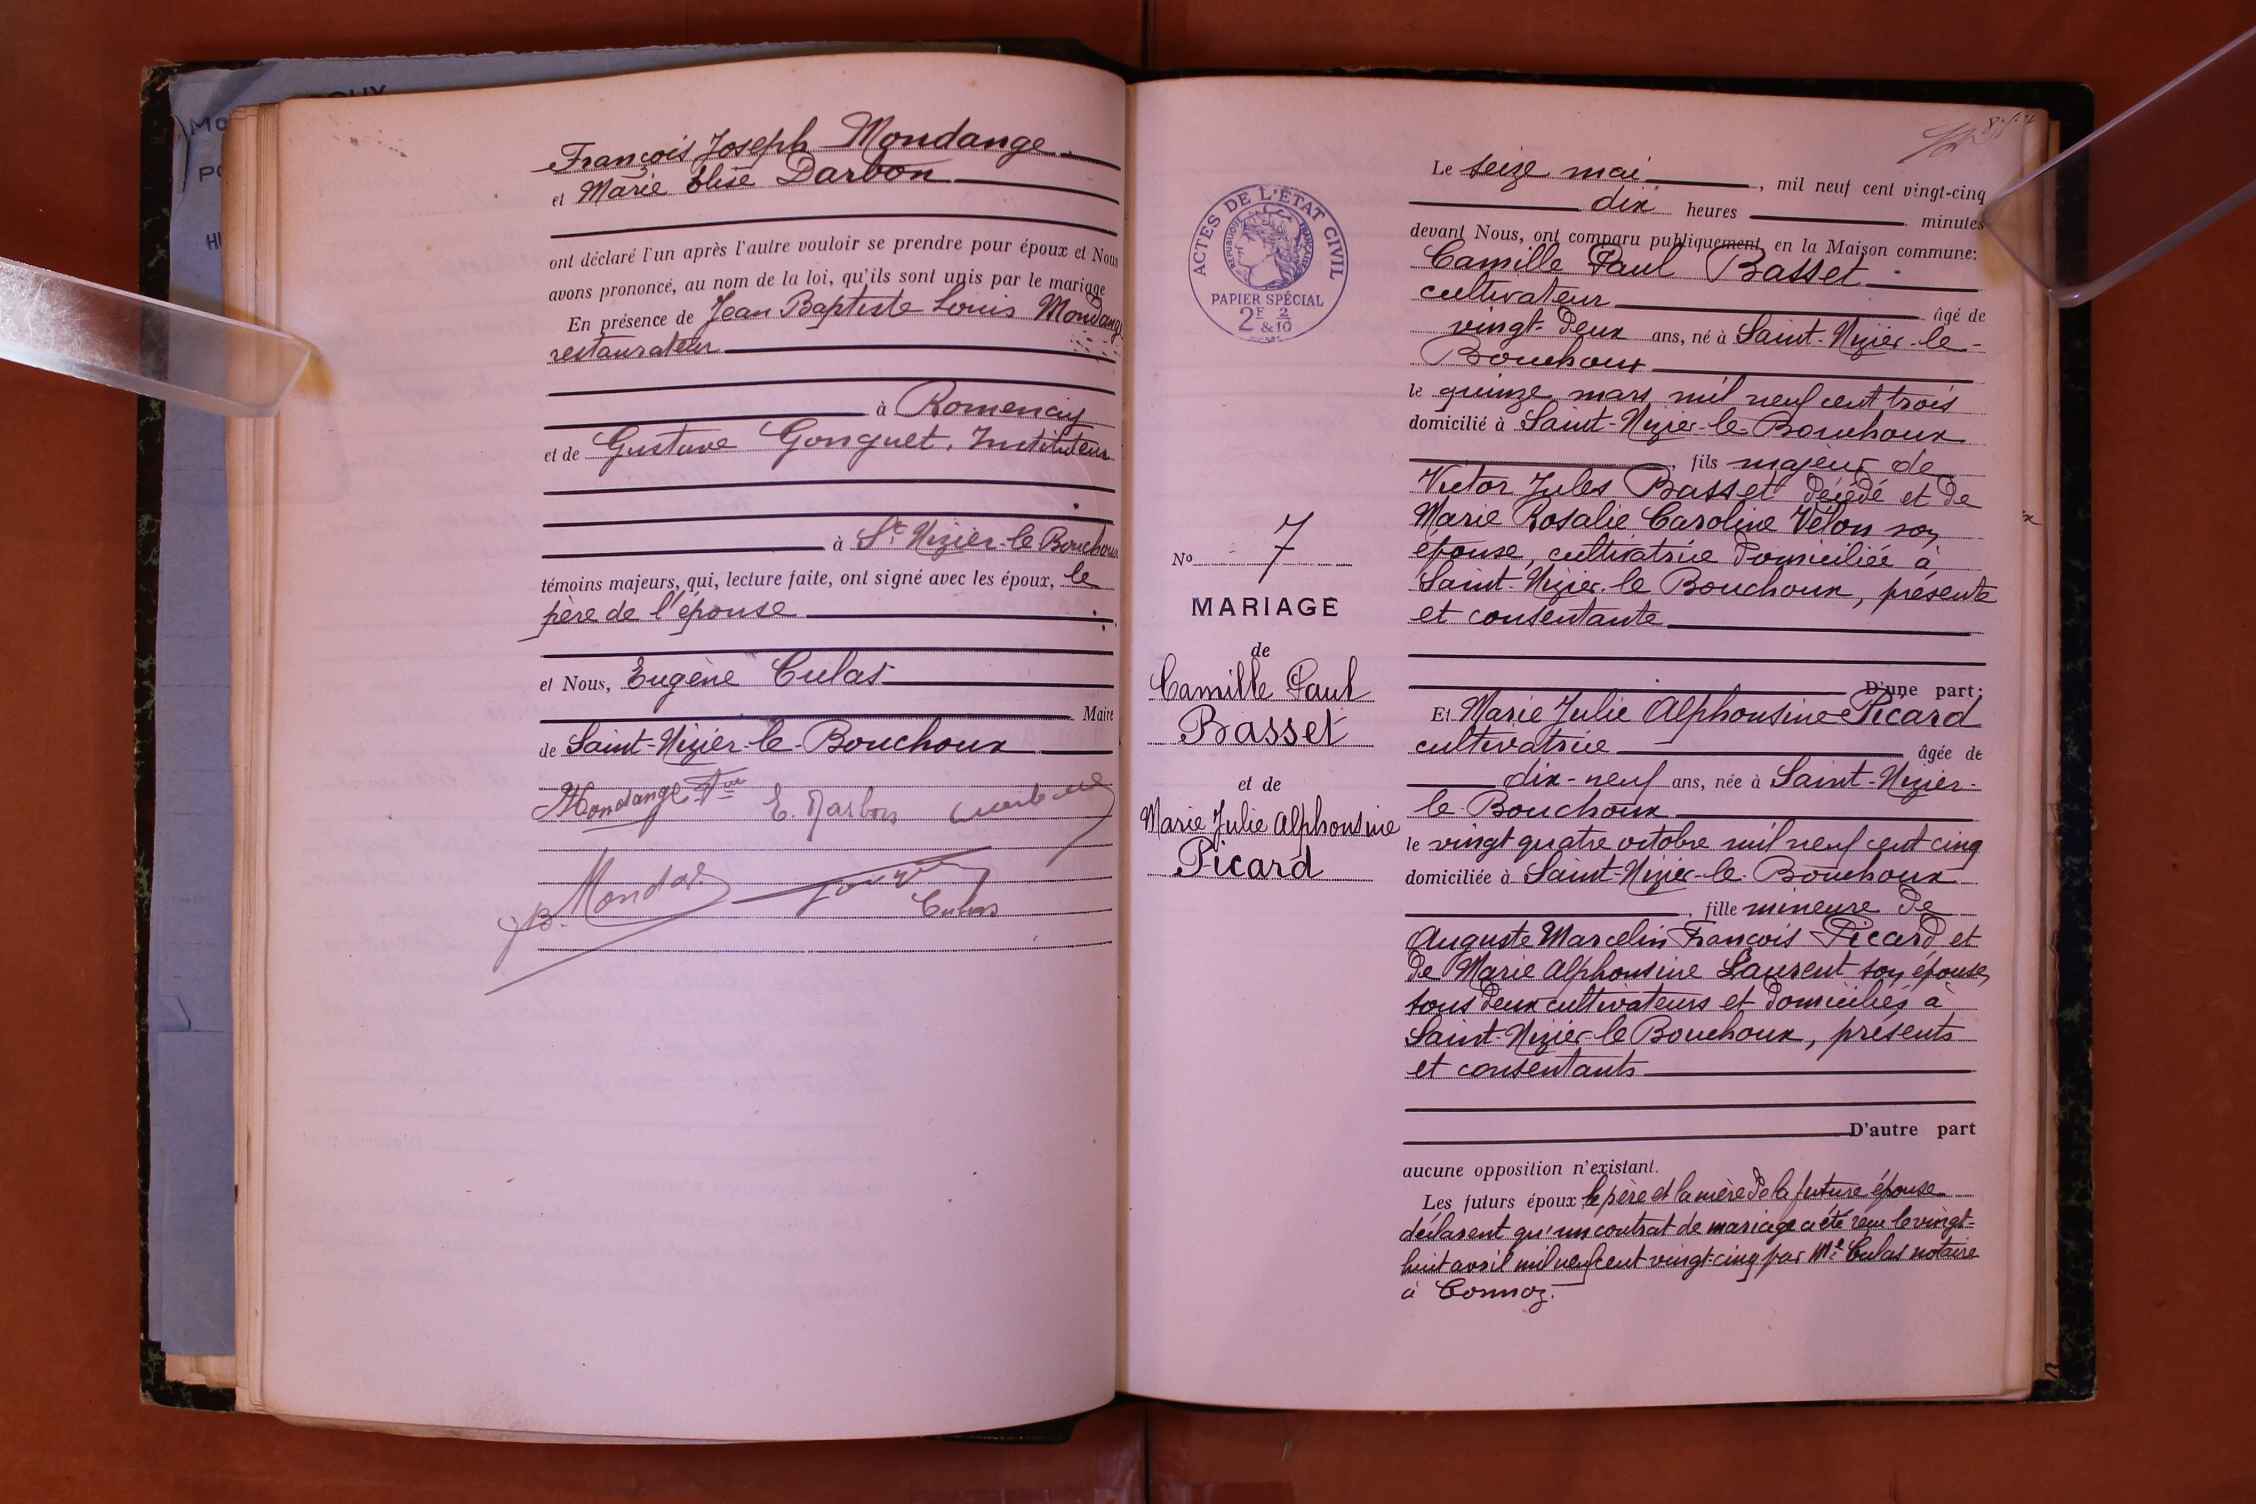 François Joseph Mondange
et Marie Elise Darbon
ont déclaré l'un après l'autre vouloir se prendre pour époux et Nous
avons prononcé, au nom de la loi, qu'ils sont unis par le mariage
En présence de Jean Baptiste Louis Mondange
restaurateur
à Romenay
et de Gustave Gonguet, Instituteur
à St Nizier-le Bouchoux
témoins majeurs, qui, lecture faite, ont signé avec les époux, le
père de l'épouse
et Nous, Eugène Culas
Maire
de Saint-Nizier-le-Bouchoux
Mondange
E. Darbon
JB. Mondan
Culas
Le seize mai, mil neuf cent vingt-cinq
dix heures minutes
devant Nous, ont comparu publiquement, en la Maison commune:
Camille Paul Basset
cultivateur âgé de
vingt-deux ans, né à Saint-Nizier-le-
Bouchoux
le quinze mars mil neuf cent trois
domicilié à Saint-Nizier-le-Bouchoux
, fils majeur de
Victor Jules Basset décédé et de
Marie Rosalie Caroline Vélon son
épouse, cultivatrice domiciliée à
Saint-Nizier-le Bouchoux, présente
et consentante
D'une part;
Et Marie Julie Alphonsine Picard
cultivatrice âgée de
dix-neuf ans, née à Saint-Nizier-
le-Bouchoux
le vingt quatre octobre mil neuf cent cinq
domiciliée à Saint-Nizier-le-Bouchoux
, fille mineure de
Auguste Marcelin François Picard et
de Marie Alphonsine Laurent son épouse,
tous deux cultivateurs et domiciliés à
Saint-Nizier-le Bouchoux, présents
et consentants
D'autre part
aucune opposition n'existant.
Les futurs époux, le père et la mère de la future épouse
déclarent qu'un contrat de mariage a été reçu le vingt-
huit avril mil neuf cent vingt-cinq par Me Culas notaire
à Cormoz.
ACTES DE L'ÉTAT CIVIL
RÉPUBLIQUE FRANÇAISE
PAPIER SPÉCIAL
2F & 2/10
No 7
MARIAGE
de
Camille Paul
Basset
et de
Marie Julie Alphonsine
Picard